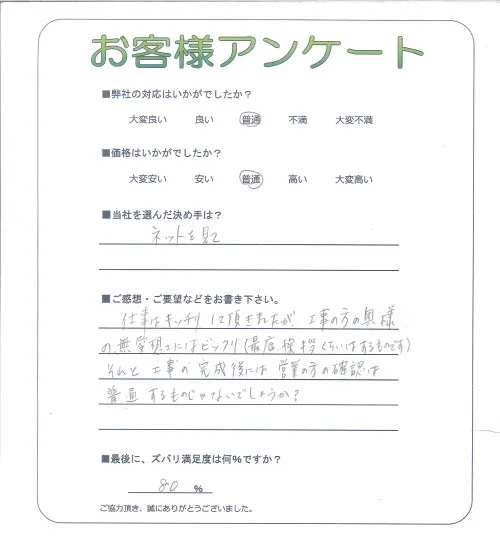 お客様アンケート
■弊社の対応はいかがでしたか？
大変良い 良い 普通 不満 大変不満
■価格はいかがでしたか？
大変安い 安い 普通 高い 大変高い
■当社を選んだ決め手は？
ネットを見て
■ご感想・ご要望などをお書き下さい。
仕事はキッチリして頂きましたが、工事の方の奥様
の無愛想さにはビックリ(最低挨拶くらいはするものです)
それと工事の完成後には営業の方の確認は
普通するものじゃないでしょうか?
■最後に、ズバリ満足度は何%ですか？
80 %
ご協力頂き、誠にありがとうございました。